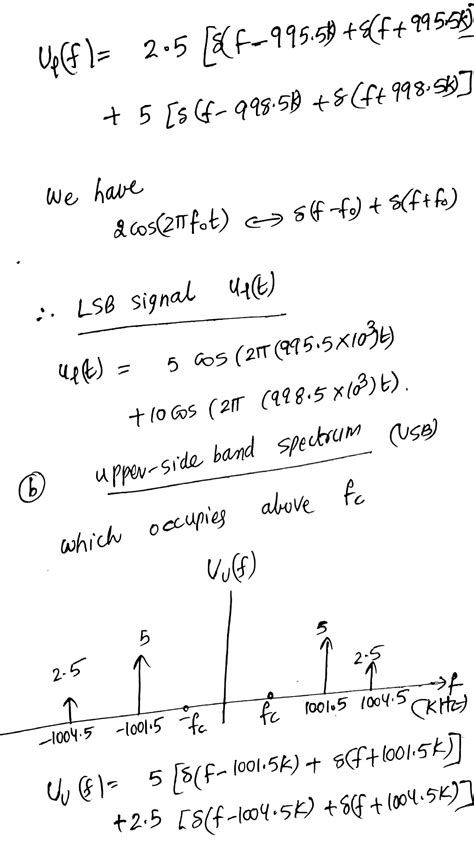 U_l(f) = 2.5 [δ(f-995.5k) + δ(f+995.5k)]
+ 5 [δ(f-998.5k) + δ(f+998.5k)]
we have
2cos(2πf₀t) ⟺ δ(f-f₀) + δ(f+f₀)
∴ LSB signal u_l(t)
u_l(t) = 5 cos (2π(995.5×10³)t)
+10 cos (2π (998.5×10³)t).
(b) upper-side band spectrum (USB)
which occupies above fc
U_u(f)
5 5
2.5 2.5
-1004.5 -1001.5 -fc fc 1001.5 1004.5 f (KHz)
U_u(f) = 5 [δ(f-1001.5k) + δ(f+1001.5k)]
+2.5 [δ(f-1004.5k) + δ(f+1004.5k)]